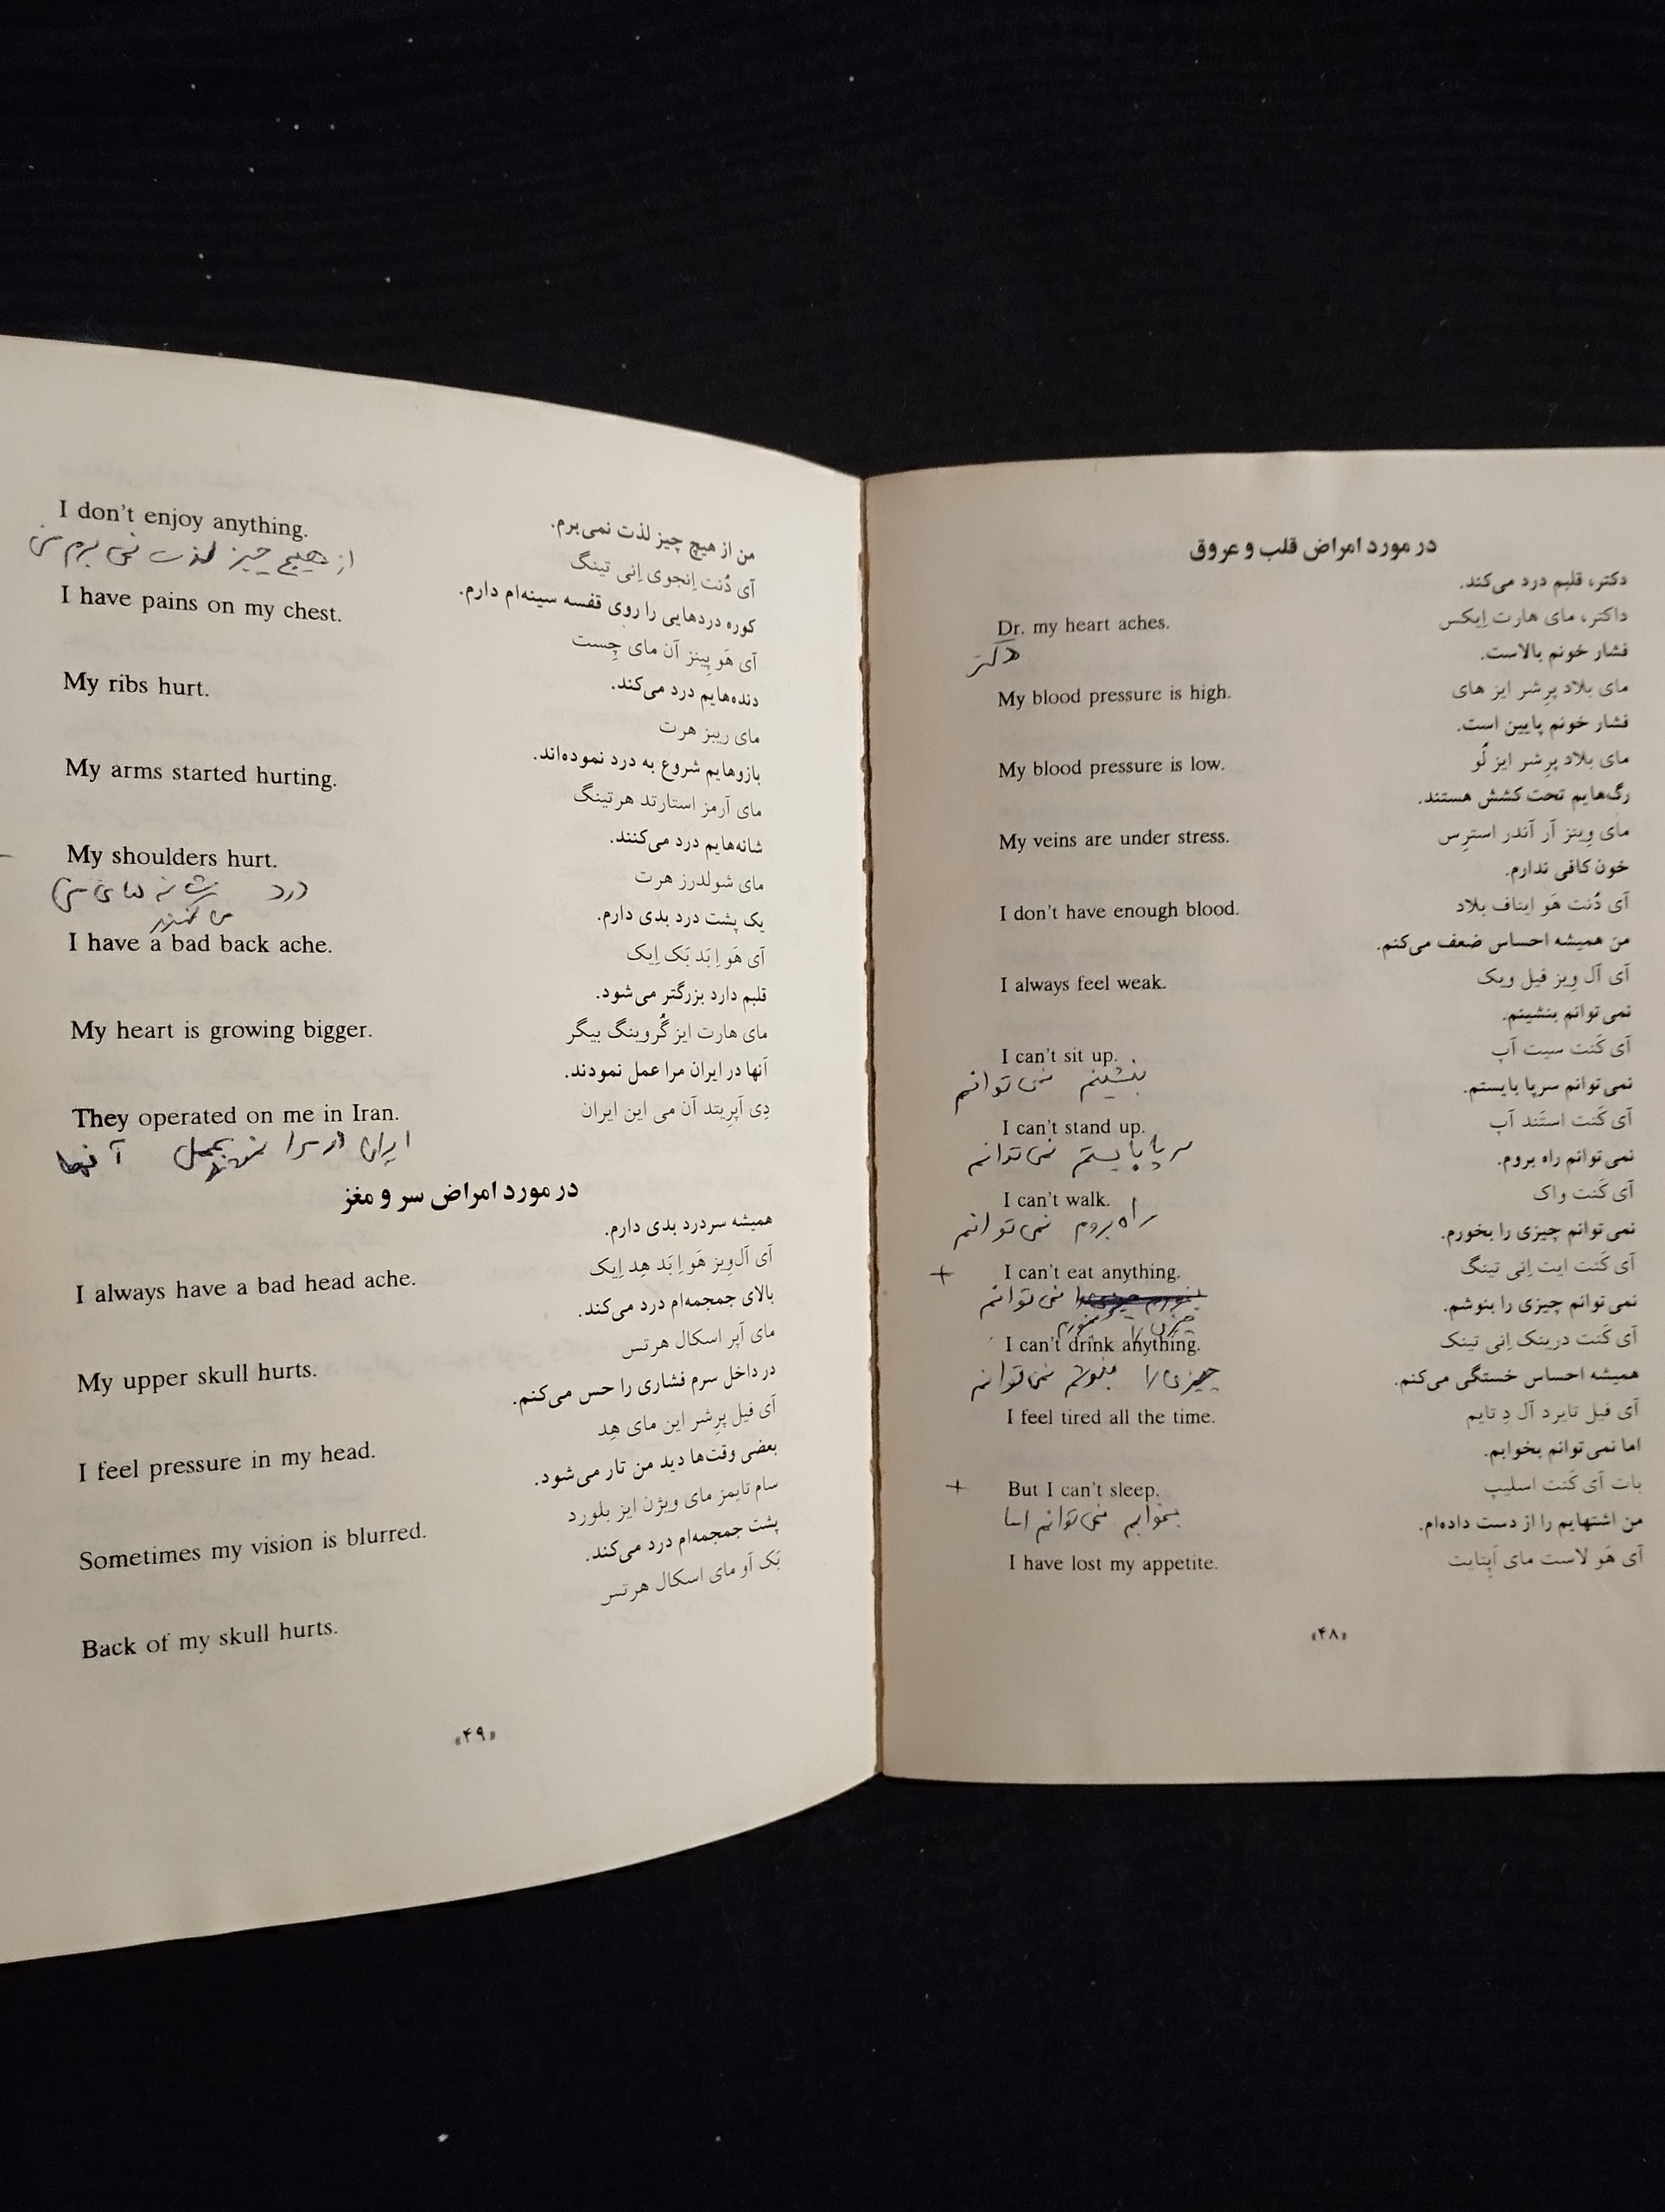 در مورد امراض قلب و عروق
دکتر، قلبم درد می‌کند.
Dr. my heart aches.
داکتر، مای هارت اِیکس
دکتر
فشار خونم بالاست.
My blood pressure is high.
مای بلاد پرِشر ایز های
فشار خونم پایین است.
My blood pressure is low.
مای بلاد پرِشر ایز لُو
رگ‌هایم تحت کشش هستند.
My veins are under stress.
مای وِینز آر آندر استرِس
خون کافی ندارم.
I don't have enough blood.
آی دُنت هَو ایناف بلاد
من همیشه احساس ضعف می‌کنم.
I always feel weak.
آی آل وِیز فیل ویک
نمی‌توانم بنشینم.
I can't sit up.
آی کَنت سیت آپ
بنشینم نمی توانم
نمی‌توانم سرپا بایستم.
I can't stand up.
آی کَنت استَند آپ
سر پا بایستم نمی توانم
نمی‌توانم راه بروم.
I can't walk.
آی کَنت واک
راه بروم نمی توانم
نمی‌توانم چیزی را بخورم.
+ I can't eat anything.
آی کَنت ایت اِنی تینگ
نمی توانم
چیزی را بخورم
نمی‌توانم چیزی را بنوشم.
I can't drink anything.
آی کَنت درینک اِنی تینک
چیزی را بنوشم نمی توانم
همیشه احساس خستگی می‌کنم.
I feel tired all the time.
آی فیل تایرد آل دِ تایم
اما نمی‌توانم بخوابم.
+ But I can't sleep.
بات آی کَنت اسلیپ
بخوابم نمی توانم اما
من اشتهایم را از دست داده‌ام.
I have lost my appetite.
آی هَو لاست مای اَپِتایت
«۴۸»
من از هیچ چیز لذت نمی‌برم.
I don't enjoy anything.
آی دُنت اِنجوی اِنی تینگ
از هیچ چیز لذت نمی برم من
کوره دردهایی را روی قفسه سینه‌ام دارم.
I have pains on my chest.
آی هَو پِینز آن مای چِست
دنده‌هایم درد می‌کند.
My ribs hurt.
مای ریبز هرت
بازوهایم شروع به درد نموده‌اند.
My arms started hurting.
مای آرمز استارتد هرتینگ
شانه‌هایم درد می‌کنند.
My shoulders hurt.
مای شولدرز هرت
درد شانه های من
می کنند
یک پشت درد بدی دارم.
I have a bad back ache.
آی هَو اِ بَد بَک اِیک
قلبم دارد بزرگتر می‌شود.
My heart is growing bigger.
مای هارت ایز گُروینگ بیگر
آنها در ایران مرا عمل نمودند.
They operated on me in Iran.
دِی آپرِیتد آن می این ایران
ایران در مرا نمودند عمل آنها
در مورد امراض سر و مغز
همیشه سردرد بدی دارم.
I always have a bad head ache.
آی آل‌وِیز هَو اِ بَد هِد اِیک
بالای جمجمه‌ام درد می‌کند.
My upper skull hurts.
مای آپر اسکال هرتس
در داخل سرم فشاری را حس می‌کنم.
I feel pressure in my head.
آی فیل پرِشر این مای هِد
بعضی وقت‌ها دید من تار می‌شود.
Sometimes my vision is blurred.
سام تایمز مای ویژن ایز بلورد
پشت جمجمه‌ام درد می‌کند.
Back of my skull hurts.
بَک آو مای اسکال هرتس
«۴۹»